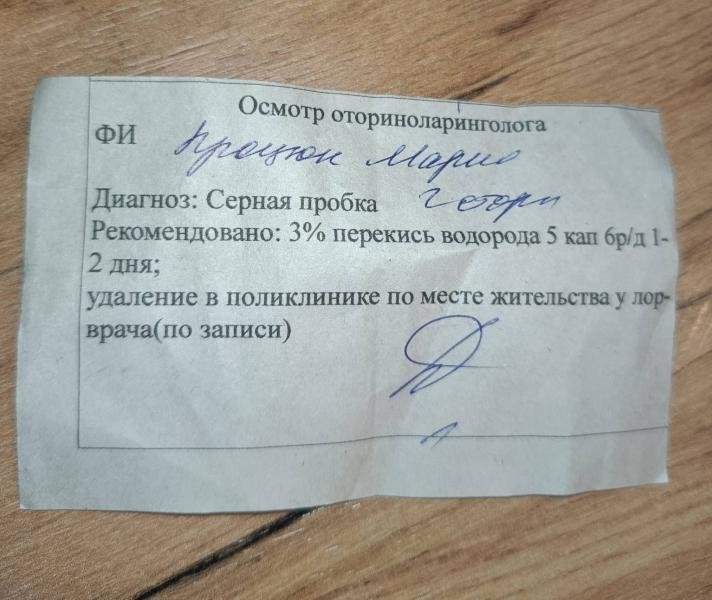 Осмотр оториноларинголога
ФИ Процюк Мария
Диагноз: Серная пробка 2 стор
Рекомендовано: 3% перекись водорода 5 кап 6р/д 1-
2 дня;
удаление в поликлинике по месте жительства у лор-
врача(по записи)